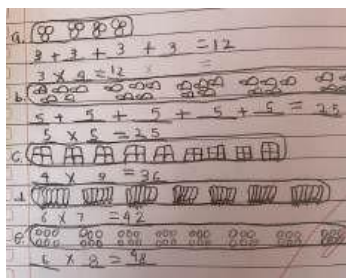 a.
3 + 3 + 3 + 3 = 12
3 × 4 = 12 =
b.
5 + 5 + 5 + 5 + 5 = 25
5 × 5 = 25
c.
4 × 9 = 36
d.
6 × 7 = 42
e.
6 × 8 = 48